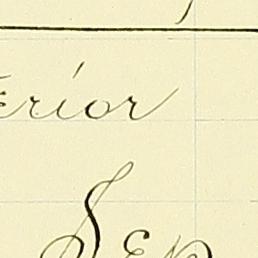 erior
Sep